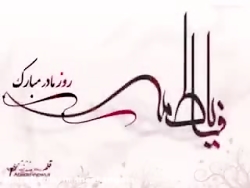 یا فاطمه
روز مادر مبارک